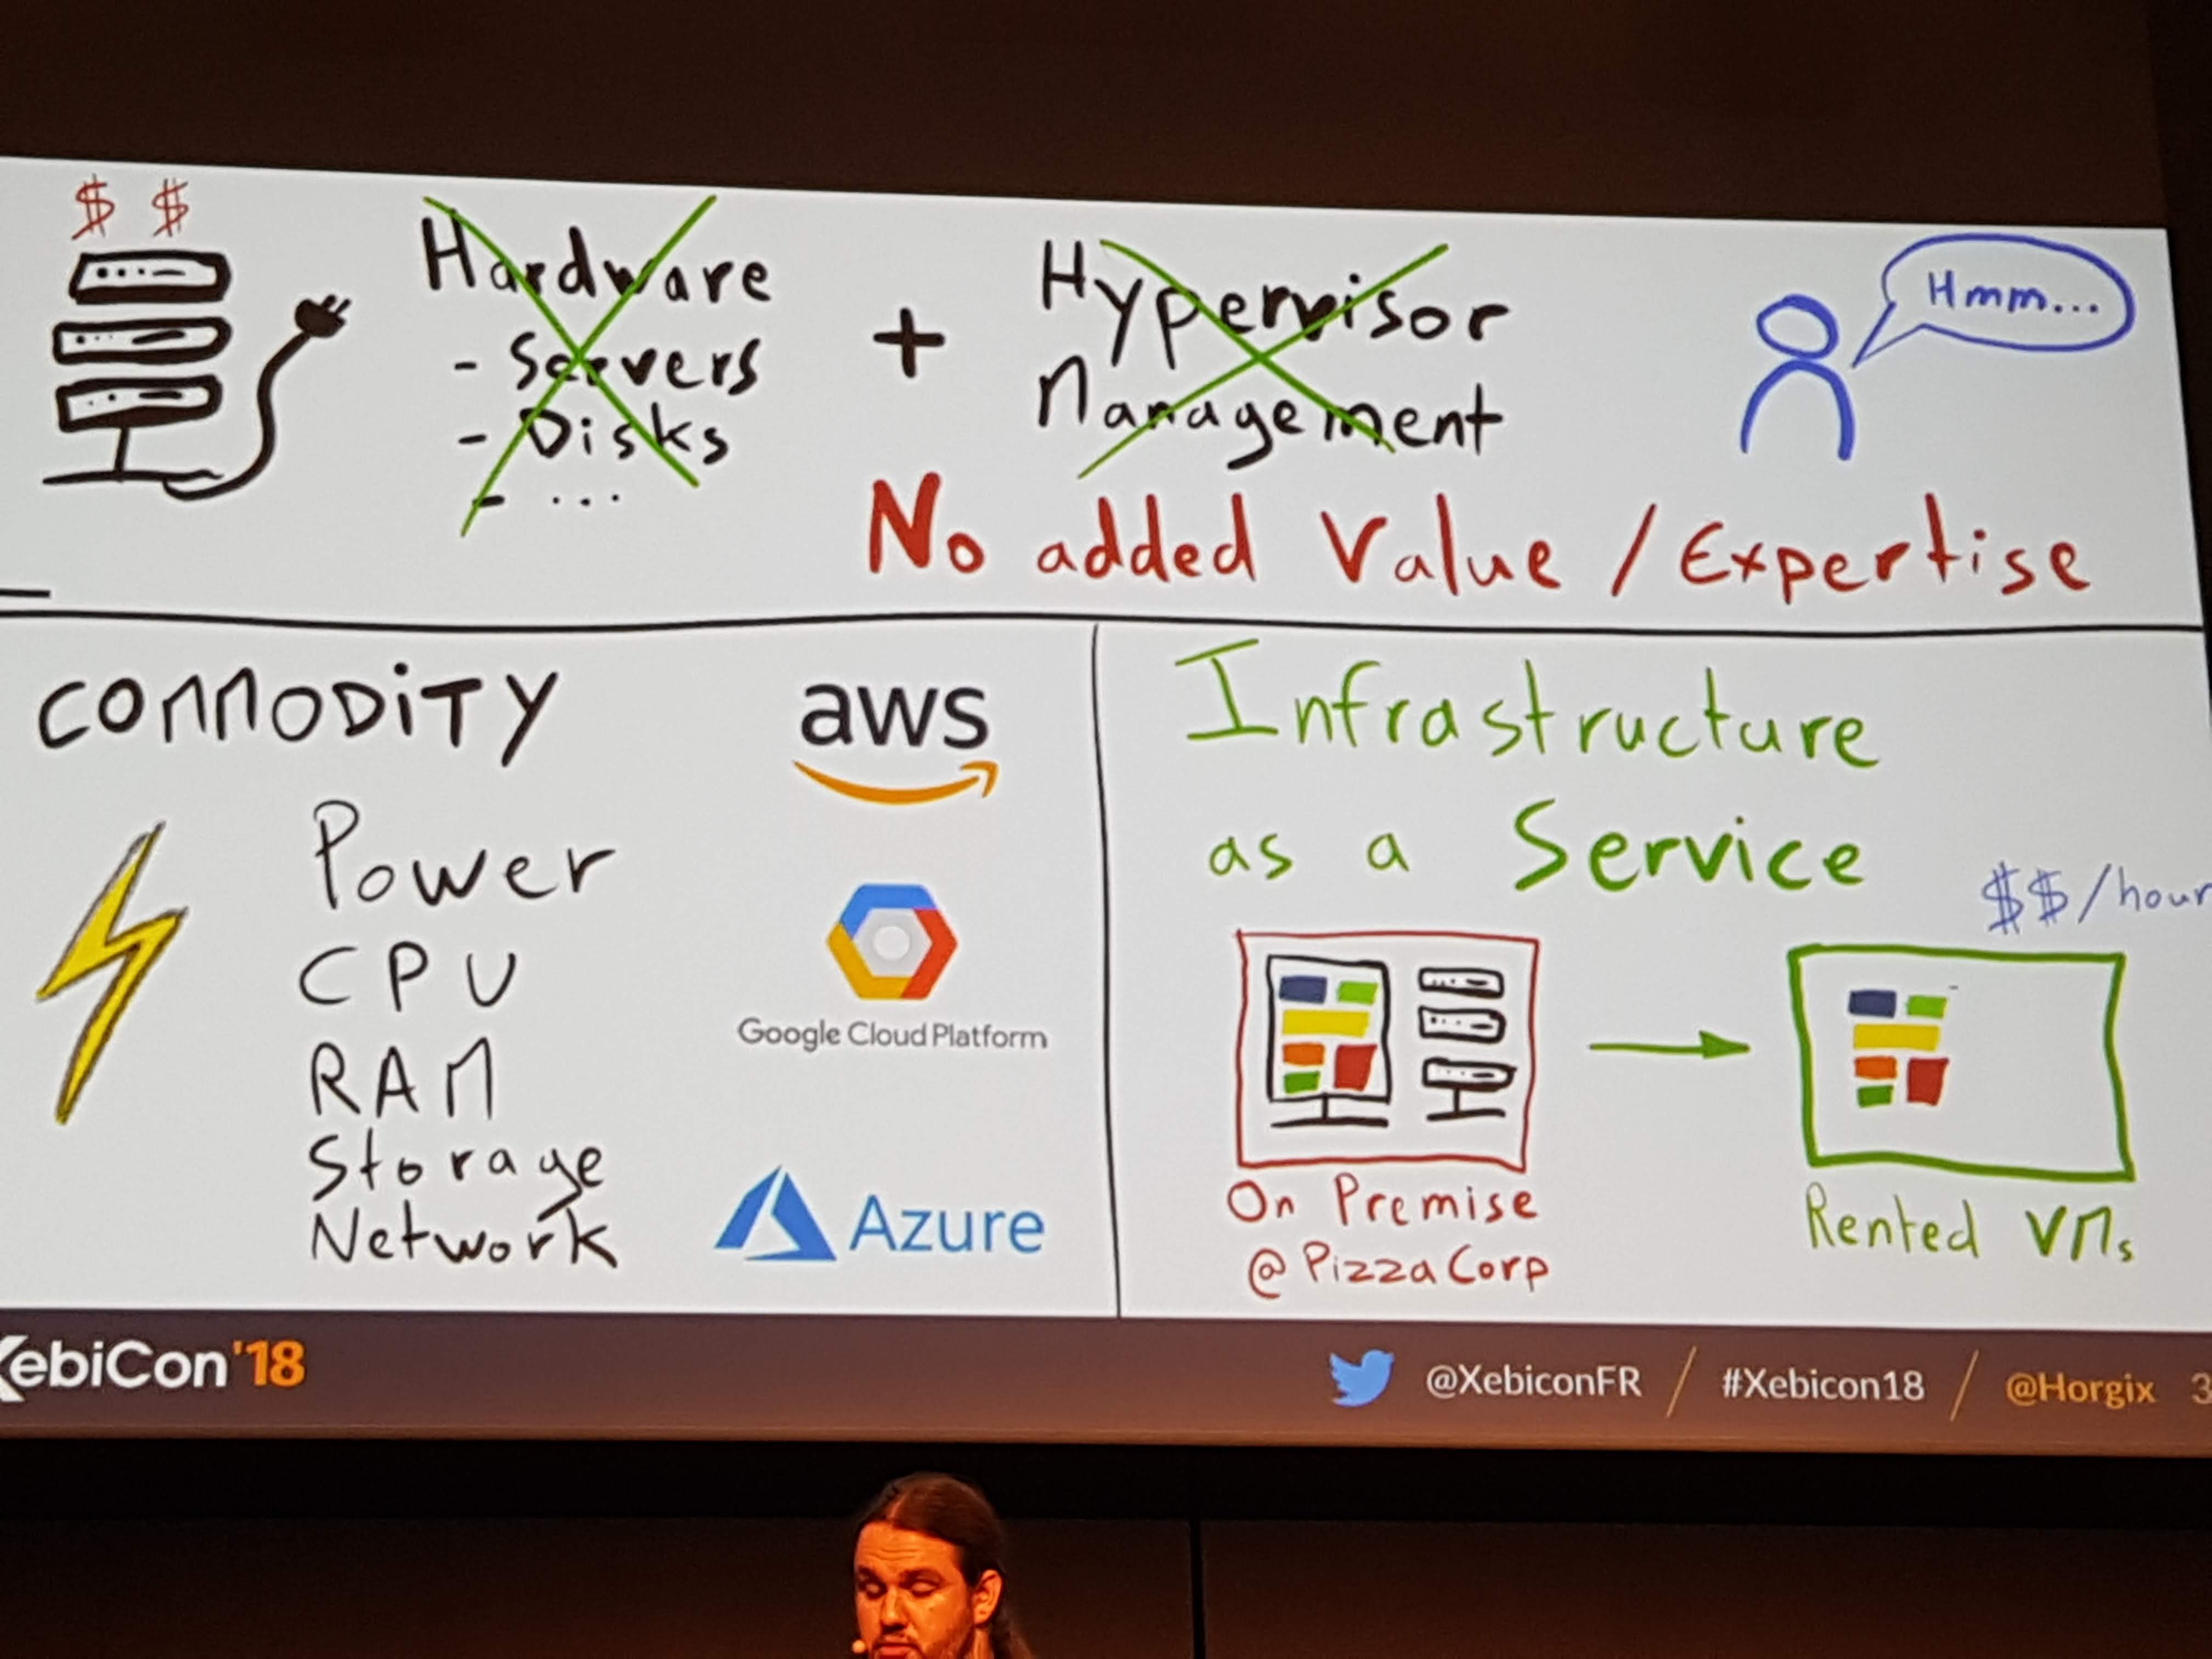 $ $
Hardware
- Servers
- Disks
- ...
+
Hypervisor
Management
Hmm...
No added Value / Expertise
COMMODITY
Power
CPU
RAM
Storage
Network
aws
Google Cloud Platform
Azure
Infrastructure
as a Service
$$/hour
On Premise
@ Pizza Corp
Rented VMs
XebiCon'18
@XebiconFR / #Xebicon18 / @Horgix 3